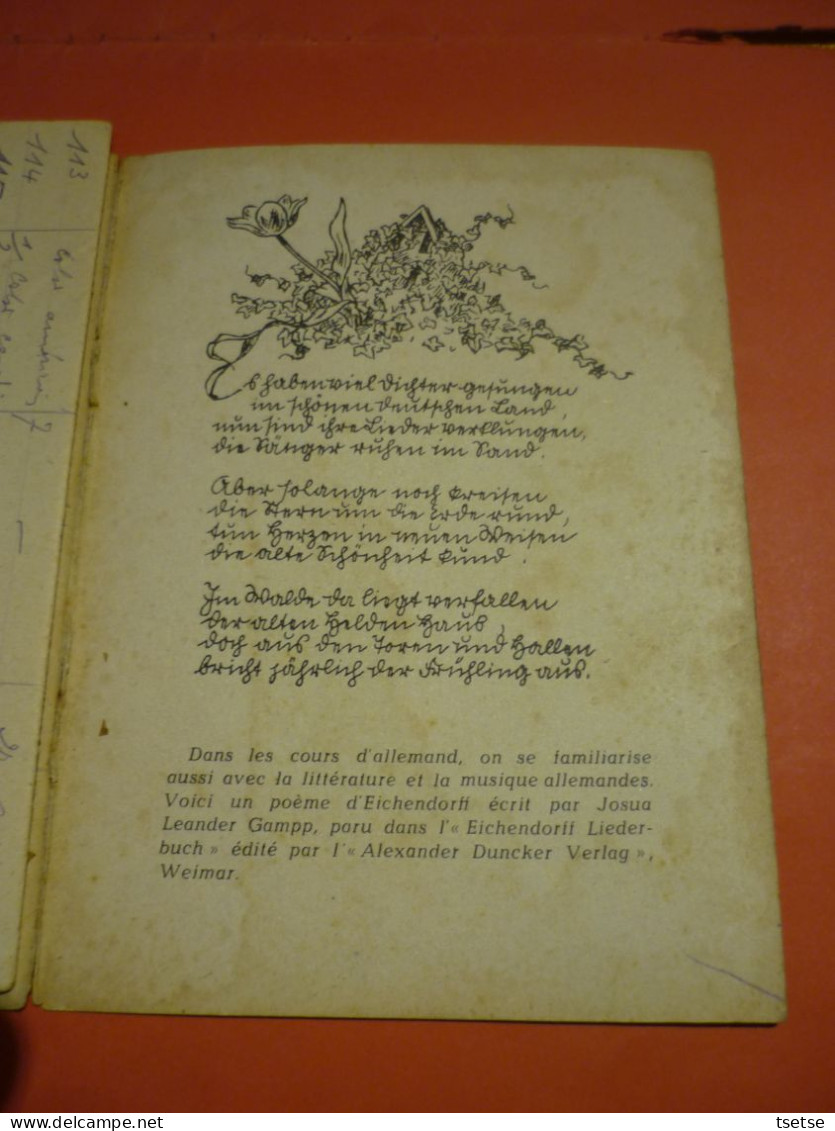 113
114
Es haben viel Dichter gesungen
im schönen deutschen Land,
nun sind ihre Lieder verklungen,
die Sänger ruhen im Sand.
Aber solange noch kreisen
die Stern um die Erde rund,
tun Herzen in neuen Weisen
die alte Schönheit kund.
Im Walde da liegt verfallen
der alten Helden Haus,
doch aus den Toren und Hallen
bricht jährlich der Frühling aus.
Dans les cours d'allemand, on se familiarise
aussi avec la littérature et la musique allemandes.
Voici un poème d'Eichendorff écrit par Josua
Leander Gampp, paru dans l'« Eichendorff Lieder-
buch » édité par l'« Alexander Duncker Verlag »,
Weimar.
tsetse